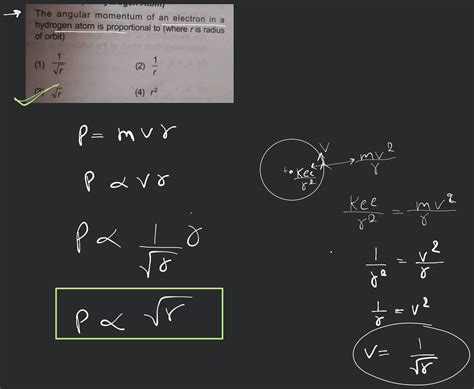 The angular momentum of an electron in a
hydrogen atom is proportional to (where r is radius
of orbit)
(1) 1/√r
(2) 1/r
(3) √r
(4) r²
P = mvr
P ∝ vr
P ∝ 1/√r r
P ∝ √r
V
+• Kee/r²
mv²/r
Kee/r² = mv²/r
1/r² = v²/r
1/r = v²
v = 1/√r